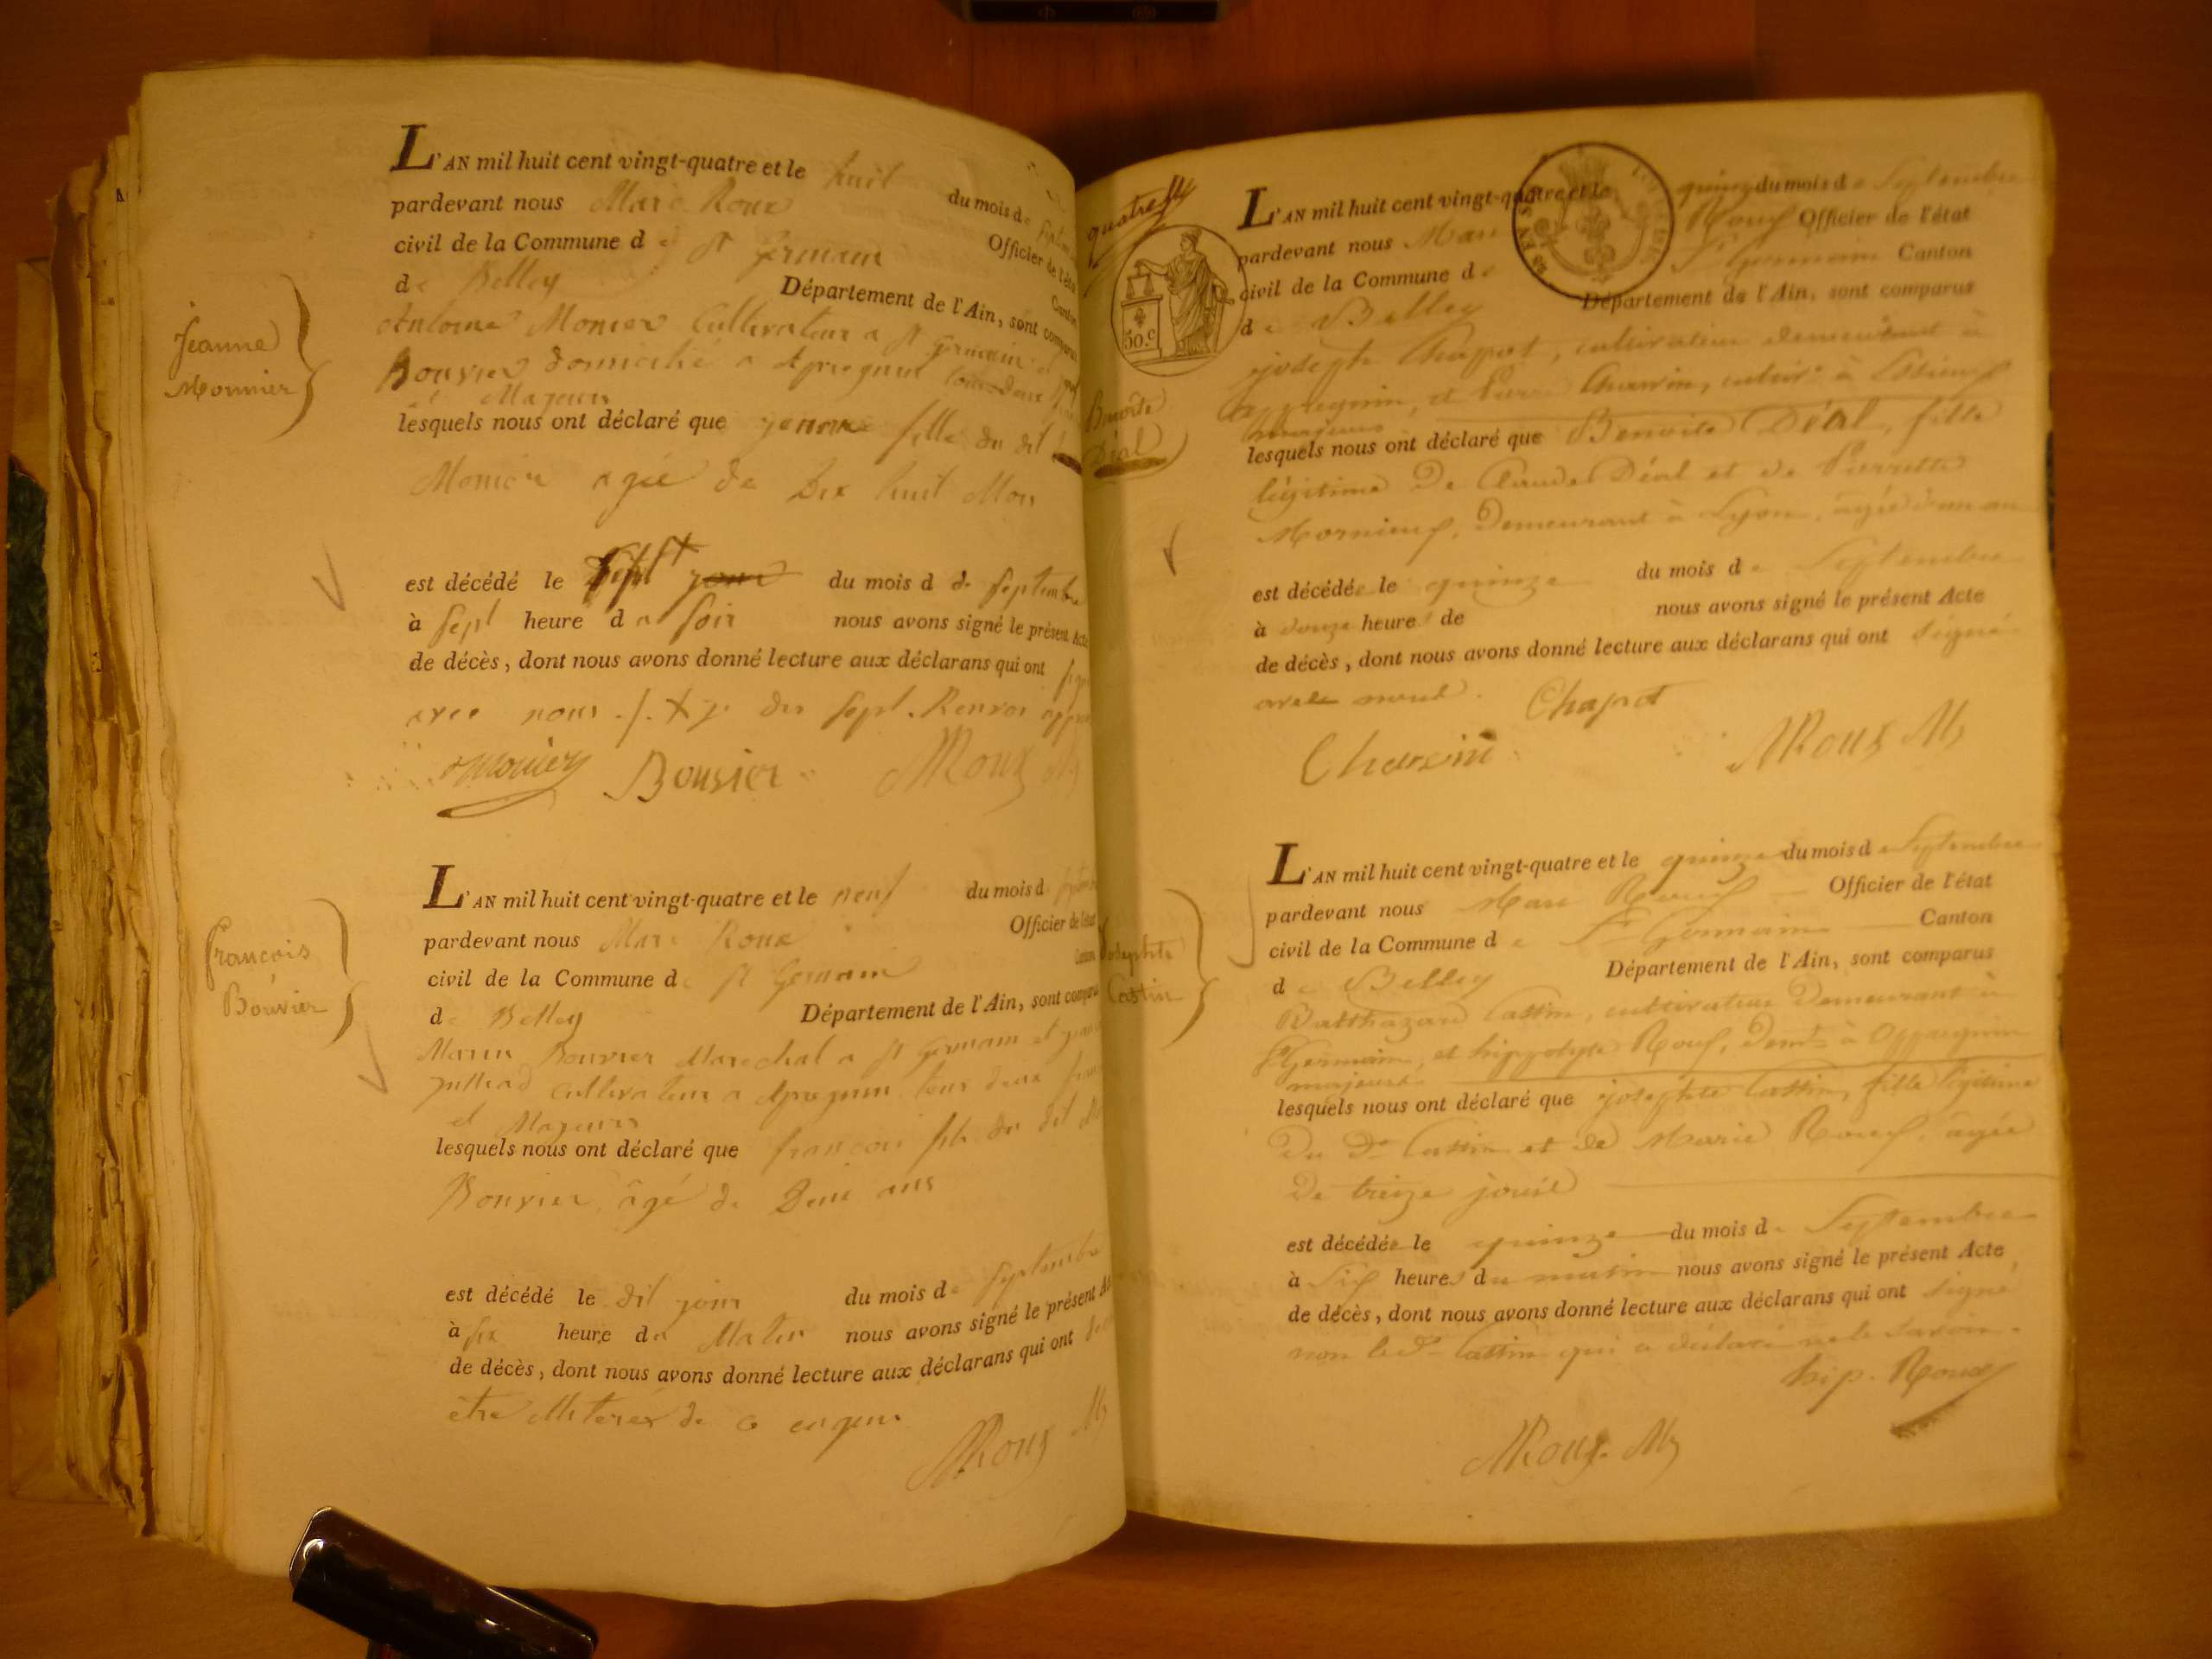 Jeanne
Monnier
L'AN mil huit cent vingt-quatre et le huit du mois de Septem
pardevant nous Marc Roux Officier de l'état
civil de la Commune de St Germain Canton
de Belley Département de l'Ain, sont comparus
Antoine Monier Cultivateur a St Germain et
Bouvier domicilié a Apregnin tous deux
et Majeurs
lesquels nous ont déclaré que jeanne fille du dit
Monier agée de Dix huit Mois
est décédé le Sept + jour du mois d de Septembre
à Sept heure du soir nous avons signé le présent Acte
de décès, dont nous avons donné lecture aux déclarans qui ont sign
avec nous ./. + dis sept. Renvoi appr
Monier Bouvier MRoux My
François
Bouvier
L'AN mil huit cent vingt-quatre et le neuf du mois d Septembre
pardevant nous Marc Roux Officier de l'état
civil de la Commune de St Germain Canton
de Belley Département de l'Ain, sont comparus
Bouvier Marechal a St Germain et
cultivateur a Apregnin tous deux
et Majeurs
lesquels nous ont déclaré que françois fils du dit
Bouvier âgé de Deux ans
est décédé le dit jour du mois de Septembre
à six heure du Matin nous avons signé le présent Ac
de décès, dont nous avons donné lecture aux déclarans qui ont
être de ce enquis
MRoux My
quatre
50.c
Benoite
Déal
L'AN mil huit cent vingt-quatre et le quinze du mois de Septembre
pardevant nous Marc Roux Officier de l'état
civil de la Commune de St Germain Canton
de Belley Département de l'Ain, sont comparus
joseph Chapot, cultivateur demeurant à
appregnin, et Pierre Charvin, cultivr à Essieux
majeurs
lesquels nous ont déclaré que Benoite Déal, fille
légitime De Claude Déal et de Pierrette
Mornieux, Demeurant à Lyon, agée d'un an
est décédée le quinze du mois de Septembre
à douze heures de nous avons signé le présent Acte
de décès, dont nous avons donné lecture aux déclarans qui ont signé
avec nous. Chapot
Charvin MRoux My
Josephte
Castin
L'AN mil huit cent vingt-quatre et le quinze du mois de Septembre
pardevant nous Marc Roux Officier de l'état
civil de la Commune de St Germain Canton
de Belley Département de l'Ain, sont comparus
Balthazard Castin, cultivateur Demeurant à
St Germain, et hippolyte Roux, Demt à Appregnin
majeurs
lesquels nous ont déclaré que josephte Castin, fille légitime
Du Dt Castin et de Marie Roux, agée
De treize jours
est décédée le quinze du mois de Septembre
à Six heures du matin nous avons signé le présent Acte
de décès, dont nous avons donné lecture aux déclarans qui ont signé
non le Dt Castin qui a déclaré ne le savoir.
hip. Roux
MRoux My